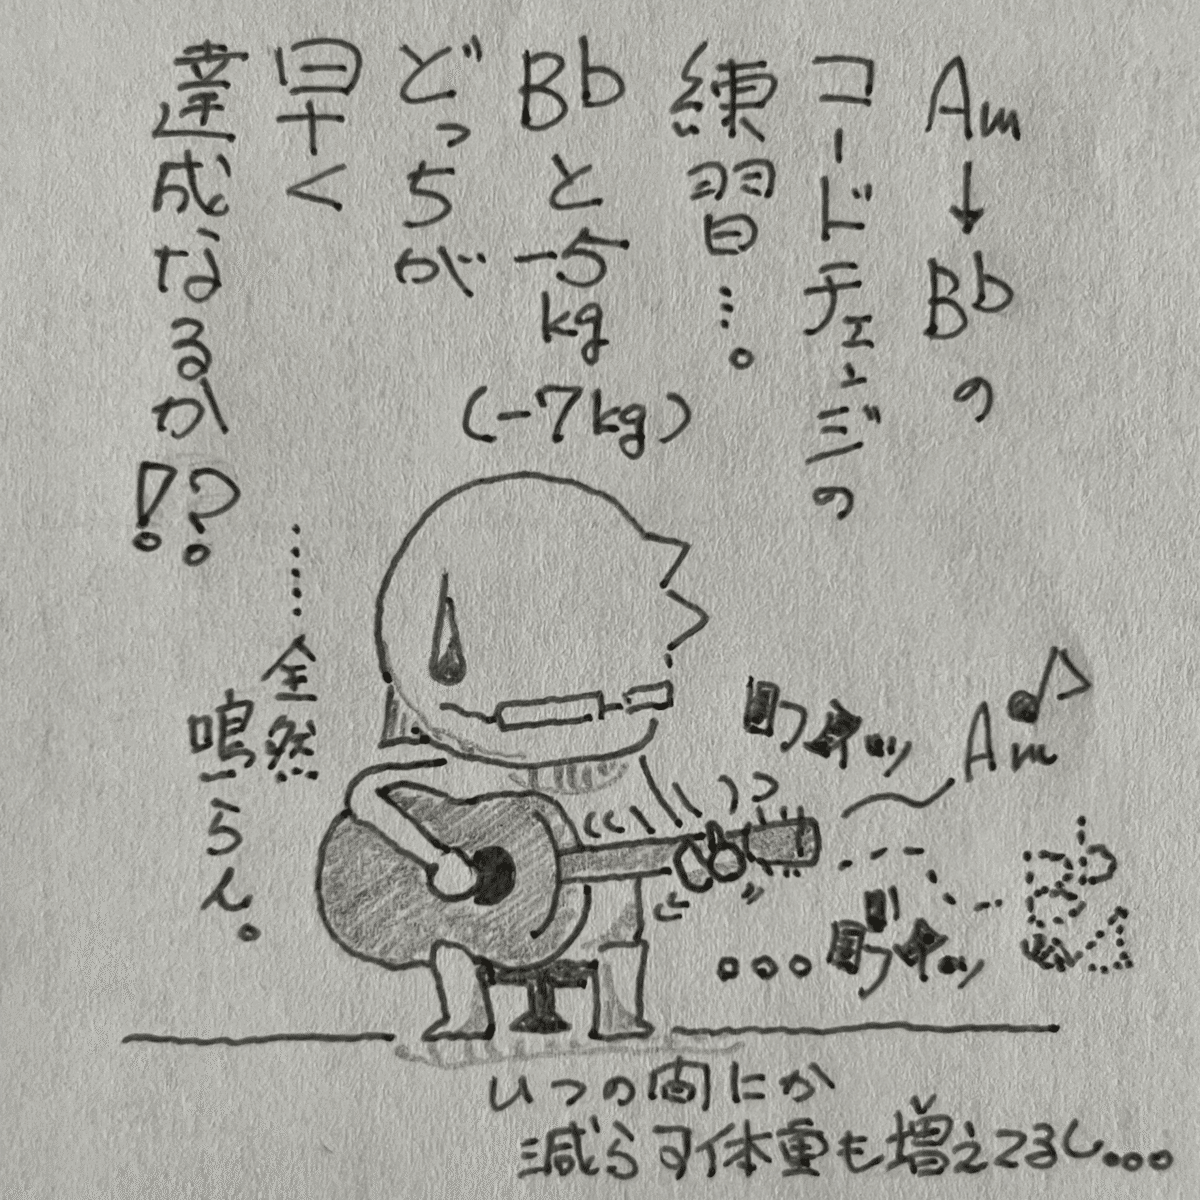 Am→Bbの
コードチェンジの
練習…。
Bbと-5kg
(-7kg)
どっちが
早く
達成なるか!?
……全然
鳴らん。
Am
Bb
いつの間にか
減らす体重も増えてるし...